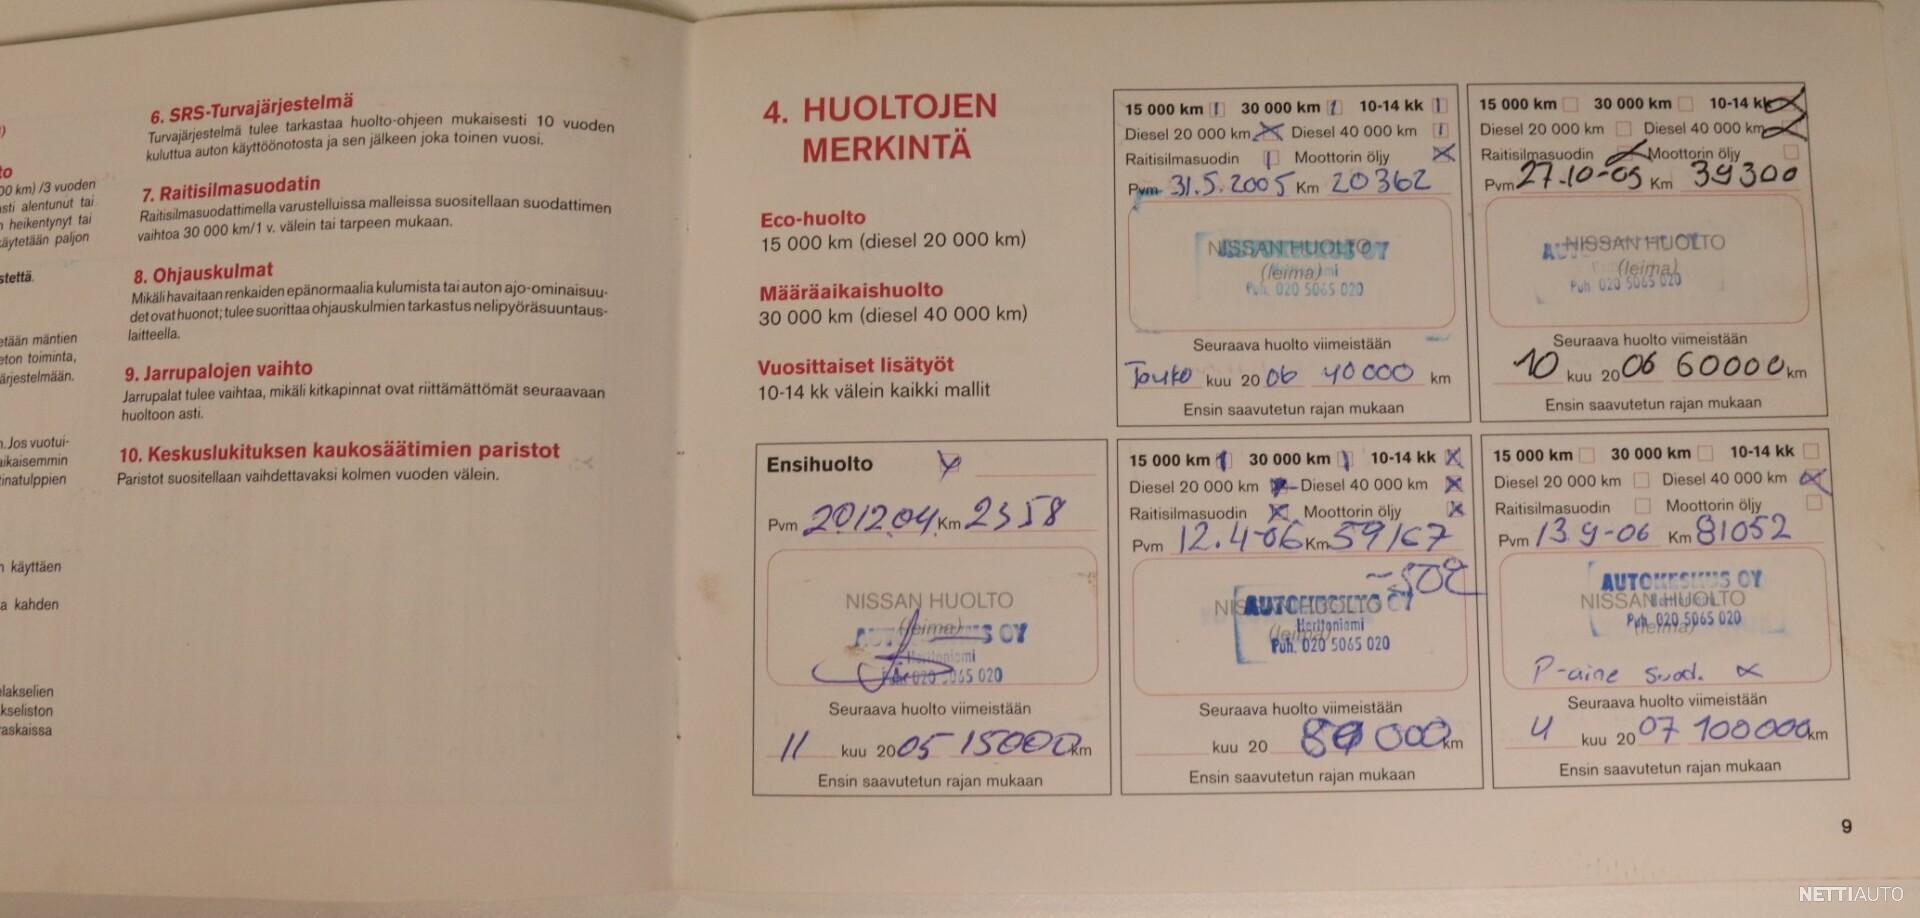 to
00 km) /3 vuoden
asti alentunut tai
n heikentynyt tai
käytetään paljon
stettä.
etään mäntien
eton toiminta,
ärjestelmään.
n. Jos vuotui-
aikaisemmin
inatulppien
n käyttäen
a kahden
elakselien
kseliston
raskaissa
6. SRS-Turvajärjestelmä
Turvajärjestelmä tulee tarkastaa huolto-ohjeen mukaisesti 10 vuoden
kuluttua auton käyttöönotosta ja sen jälkeen joka toinen vuosi.
7. Raitisilmasuodatin
Raitisilmasuodattimella varustelluissa malleissa suositellaan suodattimen
vaihtoa 30 000 km/1 v. välein tai tarpeen mukaan.
8. Ohjauskulmat
Mikäli havaitaan renkaiden epänormaalia kulumista tai auton ajo-ominaisuu-
det ovat huonot; tulee suorittaa ohjauskulmien tarkastus nelipyöräsuuntaus-
laitteella.
9. Jarrupalojen vaihto
Jarrupalat tulee vaihtaa, mikäli kitkapinnat ovat riittämättömät seuraavaan
huoltoon asti.
10. Keskuslukituksen kaukosäätimien paristot
Paristot suositellaan vaihdettavaksi kolmen vuoden välein.
4. HUOLTOJEN
MERKINTÄ
Eco-huolto
15 000 km (diesel 20 000 km)
Määräaikaishuolto
30 000 km (diesel 40 000 km)
Vuosittaiset lisätyöt
10-14 kk välein kaikki mallit
15 000 km 30 000 km 10-14 kk
Diesel 20 000 km Diesel 40 000 km
Raitisilmasuodin Moottorin öljy
Pvm 31.5.2005 Km 20362
NISSAN HUOLTO
(leima)
Puh. 020 5065 020
Seuraava huolto viimeistään
Touko kuu 20 06 40000 km
Ensin saavutetun rajan mukaan
15 000 km 30 000 km 10-14 kk
Diesel 20 000 km Diesel 40 000 km
Raitisilmasuodin Moottorin öljy
Pvm 27.10-05 Km 39300
NISSAN HUOLTO
(leima)
Puh 020 5065 020
Seuraava huolto viimeistään
10 kuu 20 06 60000 km
Ensin saavutetun rajan mukaan
Ensihuolto
Pvm 201204 Km 2358
NISSAN HUOLTO
(leima)
OY
020 5065 020
Seuraava huolto viimeistään
11 kuu 20 05 15000 km
Ensin saavutetun rajan mukaan
15 000 km 30 000 km 10-14 kk
Diesel 20 000 km Diesel 40 000 km
Raitisilmasuodin Moottorin öljy
Pvm 12.4-06 Km 59167
NISSAN HUOLTO
Puh. 020 5065 020
Seuraava huolto viimeistään
kuu 20 80 000 km
Ensin saavutetun rajan mukaan
15 000 km 30 000 km 10-14 kk
Diesel 20 000 km Diesel 40 000 km
Raitisilmasuodin Moottorin öljy
Pvm 13 9-06 Km 81052
AUTOKESKUS OY
NISSAN HUOLTO
Puh. 020 5065 020
(leima)
P-aine suod.
Seuraava huolto viimeistään
4 kuu 20 07 100000 km
Ensin saavutetun rajan mukaan
9
NETTIAUTO